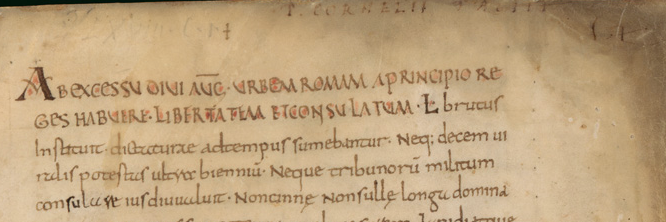 P. CORNELII TACITI
AB EXCESSU DIUI AUG· URBEM ROMAM A PRINCIPIO RE
GES HABUERE· LIBERTATEM ET CONSULATUM· L brutus
Instituit· dictaturae ad tempus sumebantur· Neq; decem ui
ralis potestas ultra bienniū· Neque tribunorū militum
consulare ius diu ualuit· Non cinne Non sulle longa domina